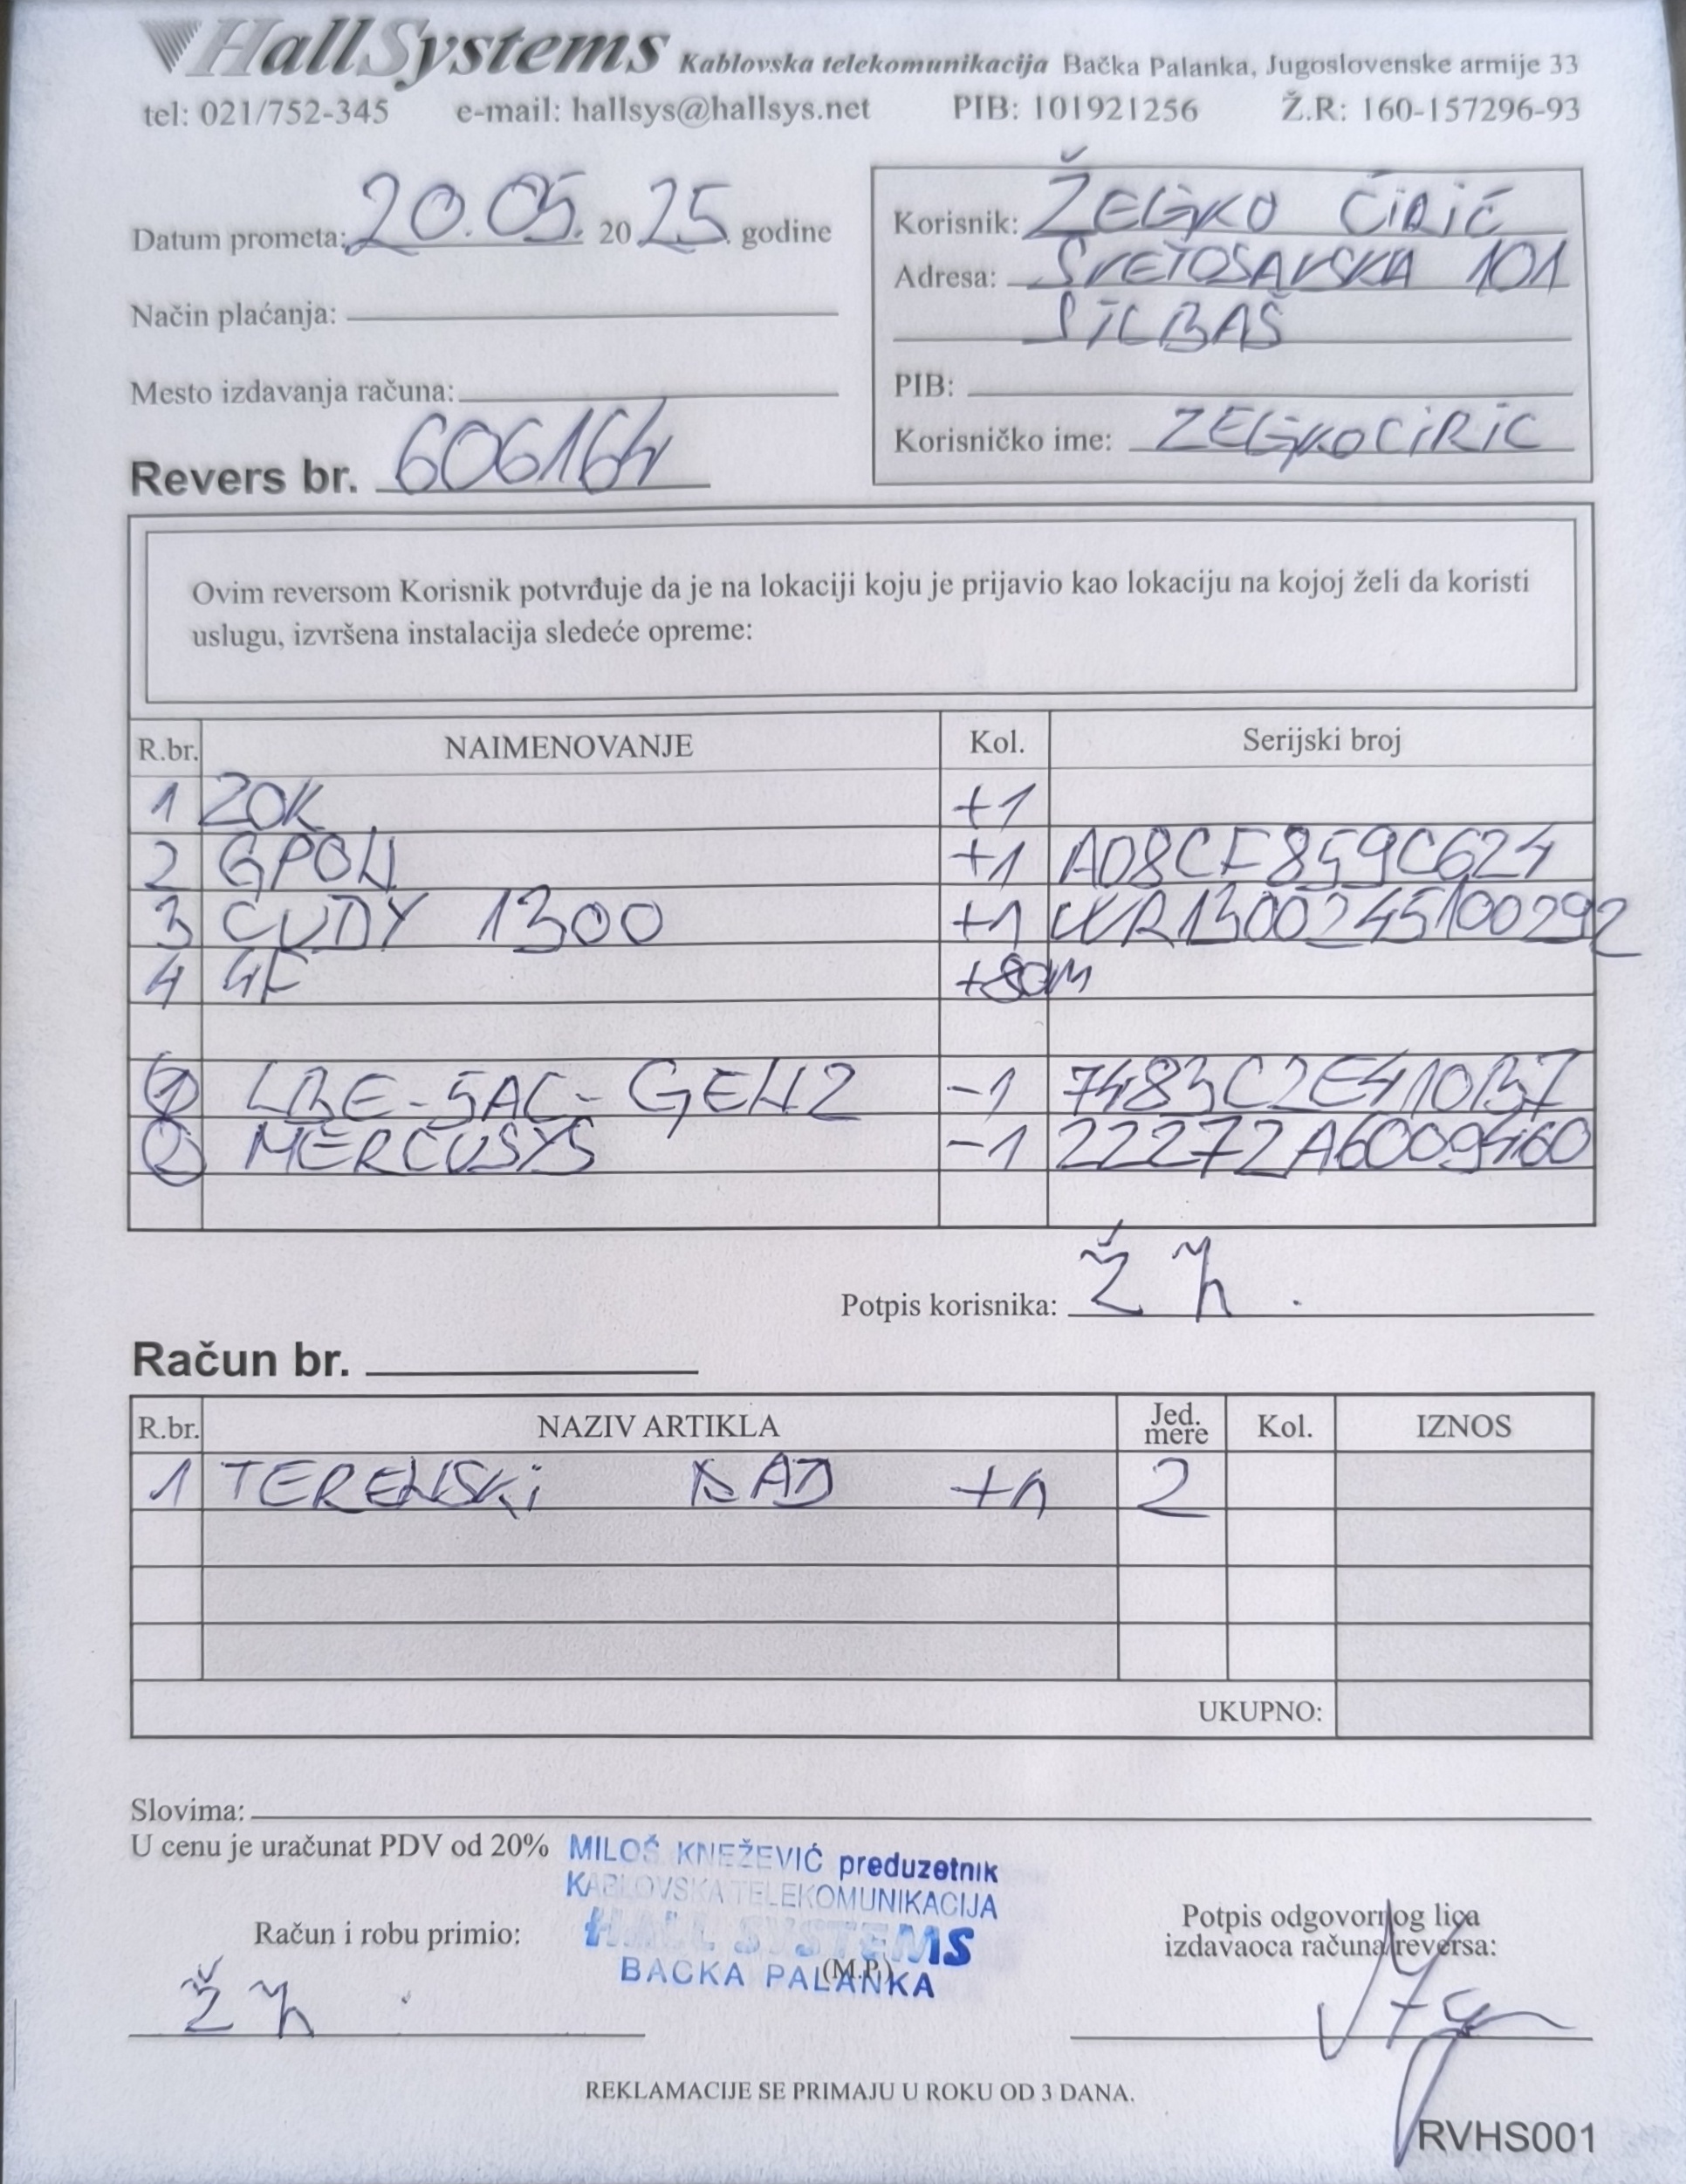 HallSystems Kablovska telekomunikacija Bačka Palanka, Jugoslovenske armije 33
tel: 021/752-345 e-mail: hallsys@hallsys.net PIB: 101921256 Ž.R: 160-157296-93
Datum prometa: 20.05. 2025. godine
Način plaćanja:
Mesto izdavanja računa:
Revers br. 606164
Korisnik: ŽELJKO ĆIRIĆ
Adresa: SVETOSAVSKA 101
SILBAŠ
PIB:
Korisničko ime: ZELJKOCIRIC
Ovim reversom Korisnik potvrđuje da je na lokaciji koju je prijavio kao lokaciju na kojoj želi da koristi
uslugu, izvršena instalacija sledeće opreme:
R.br. NAIMENOVANJE Kol. Serijski broj
1 ZOK +1
2 GPON +1 AD8CF859C624
3 CUDY 1300 +1 WR1300245100292
4 4F +80M
1 LBE-5AC-GEN2 -1 7483C2E410B7
2 MERCUSYS -1 22272A6009460
Potpis korisnika: Ž Ћ.
Račun br.
R.br. NAZIV ARTIKLA Jed. mere Kol. IZNOS
1 TERENSKI RAD +1 2
UKUPNO:
Slovima:
U cenu je uračunat PDV od 20%
MILOŠ KNEŽEVIĆ preduzetnik
KABLOVSKA TELEKOMUNIKACIJA
HALL SYSTEMS
BACKA PALANKA
(M.P.)
Račun i robu primio:
Ž Ћ.
Potpis odgovornog lica
izdavaoca računa/reversa:
REKLAMACIJE SE PRIMAJU U ROKU OD 3 DANA.
RVHS001